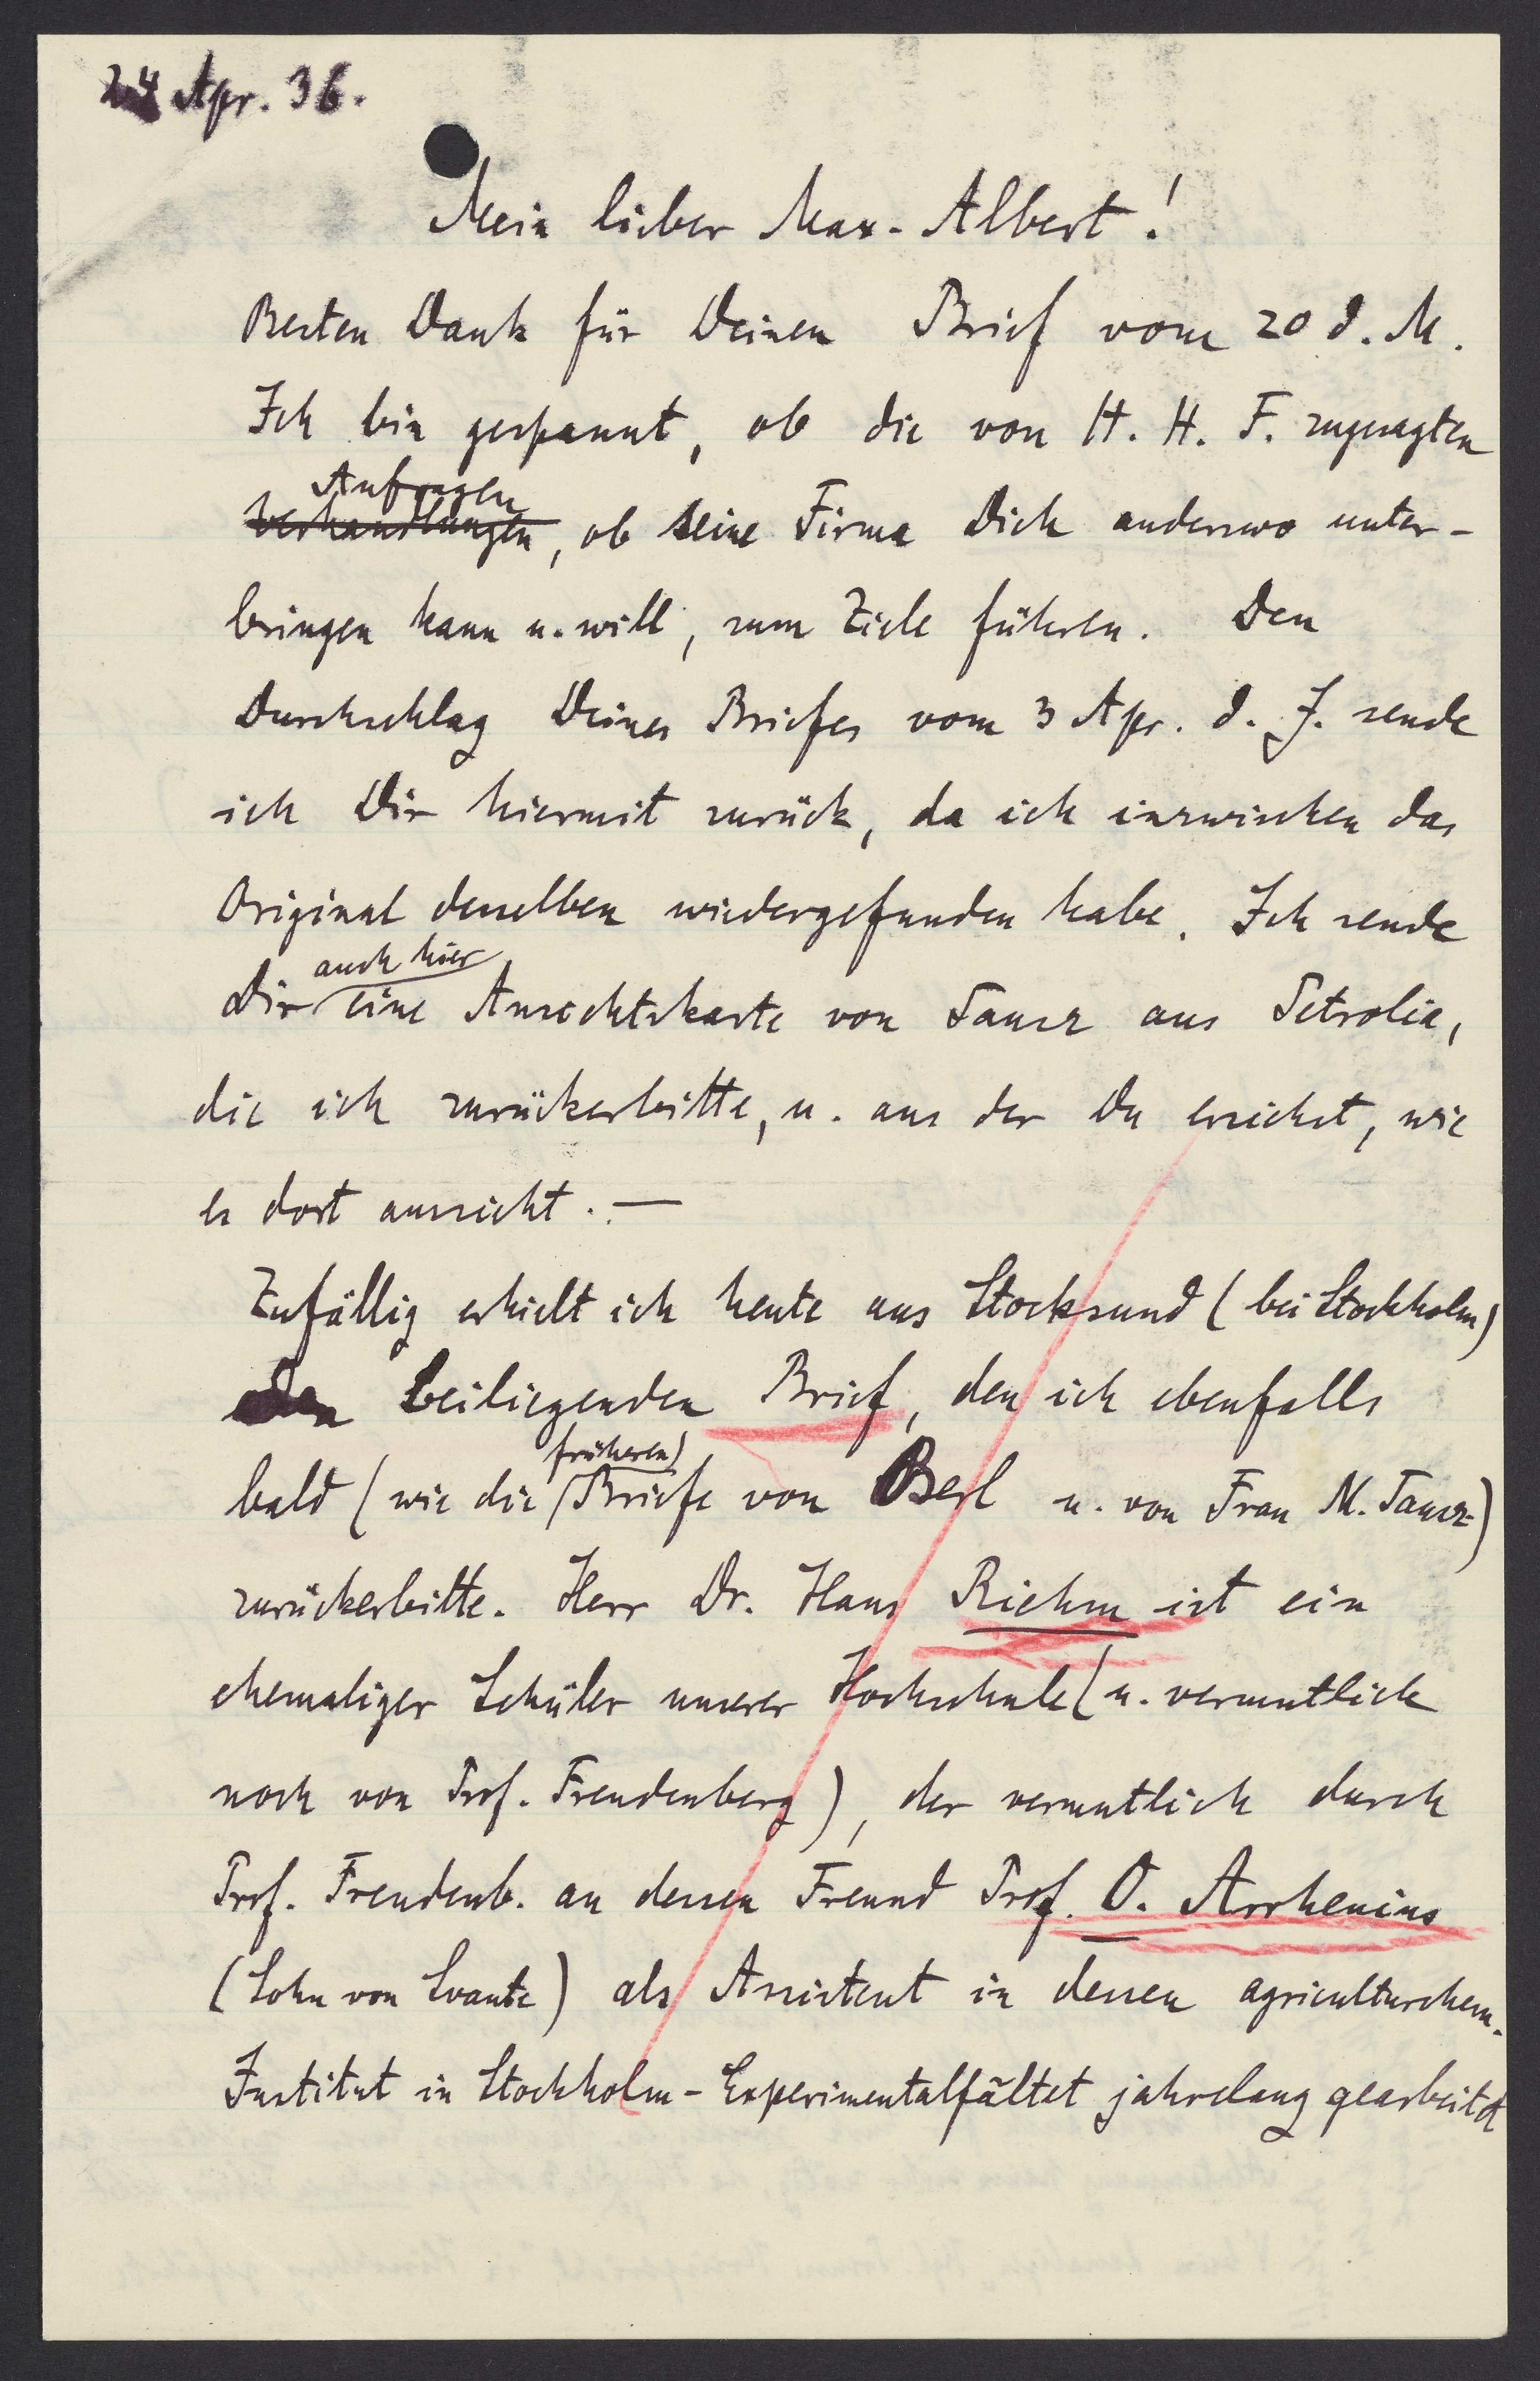 24 Apr. 36.
Mein lieber Max-Albert!
Besten Dank für Deinen Brief vom 20 d. M.
Ich bin gespannt, ob die von H. H. F. zugesagten
Anfragen
Verhandlungen, ob seine Firma Dich anderswo unter-
bringen kann u. will, zum Ziele führen. Den
Durchschlag Deines Briefes vom 3 Apr. d. J. sende
ich Dir hiermit zurück, da ich inzwischen das
Original desselben wiedergefunden habe. Ich sende
auch hier
Dir eine Ansichtskarte von Tausz aus Petrolia,
die ich zurückerbitte, u. aus der Du ersiehst, wie
es dort aussieht. —
Zufällig erhielt ich heute aus Stocksund (bei Stockholm)
den beiliegenden Brief, den ich ebenfalls
früheren
bald (wie die Briefe von Berl u. von Frau M. Tausz)
zurückerbitte. Herr Dr. Hans Riehm ist ein
ehemaliger Schüler unserer Hochschule (u. vermutlich
noch von Prof. Freudenberg), der vermutlich durch
Prof. Freudenb. an dessen Freund Prof. O. Arrhenius
(Sohn von Svante) als Assistent in dessen agriculturchem.
Institut in Stockholm-Experimentalfältet jahrelang gearbeitet